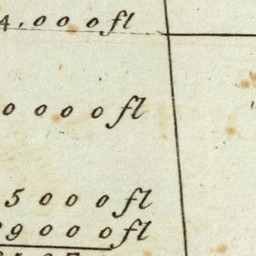 4.000 fl
0000 fl
5000 fl
9000 fl